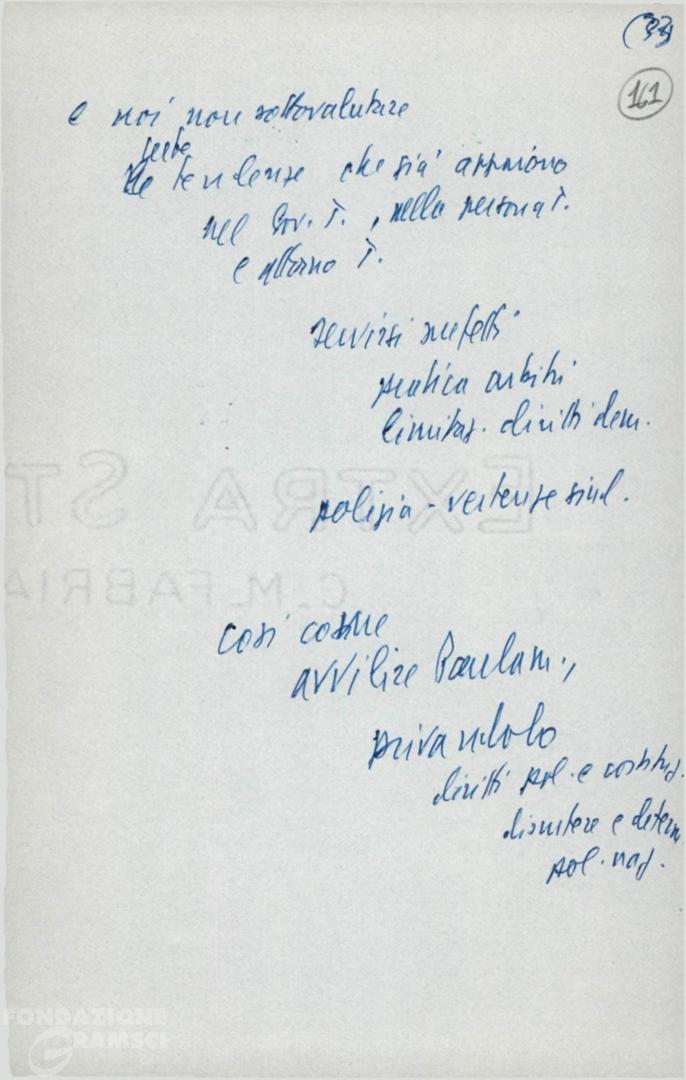 (33)
161
e noi non sottovalutare
certe
le tendenze che già appaiono
nel Gov. T., nella persona T.
e attorno T.
servirsi prefetti
pratica arbitri
limitaz. diritti dem.
polizia - vertenze sind.
EXTRA ST
C.M. FABRIA
così come
avvilire Parlam.,
privandolo
diritti pol. e costituz.
discutere e determ
pol. naz.
FONDAZIONE
GRAMSCI